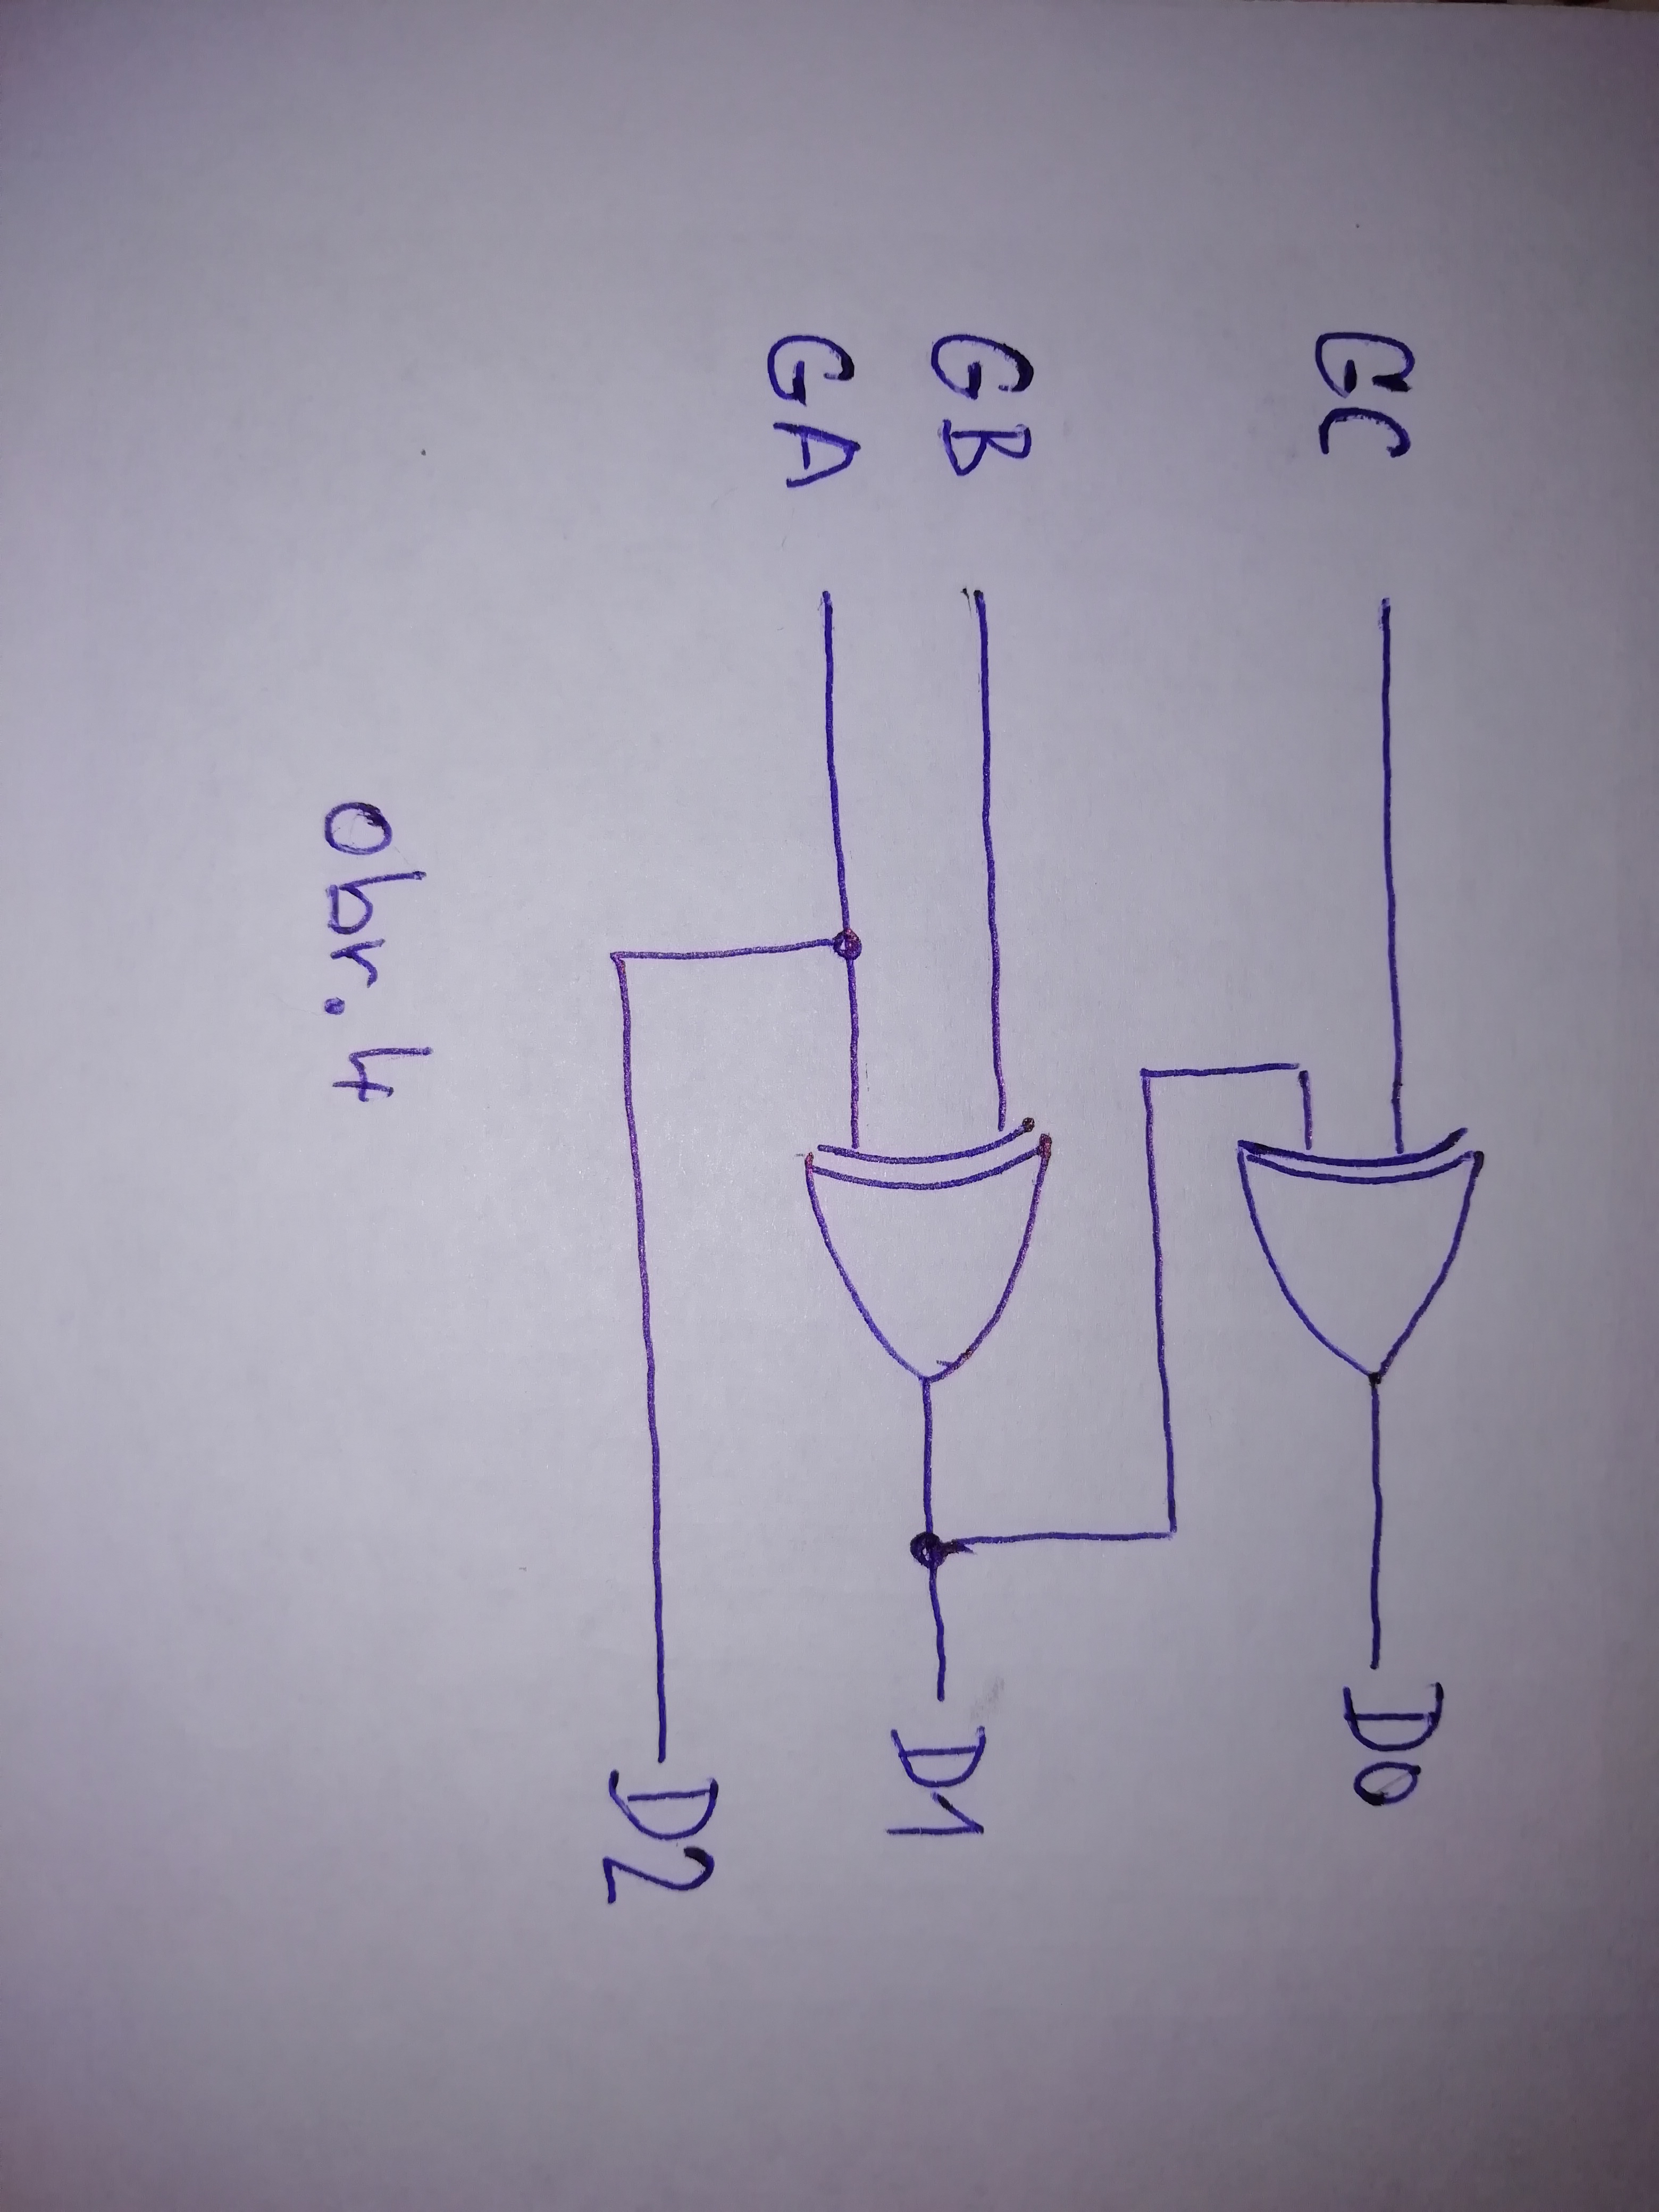 GC D0
GB D1
GA
D2
obr. 4